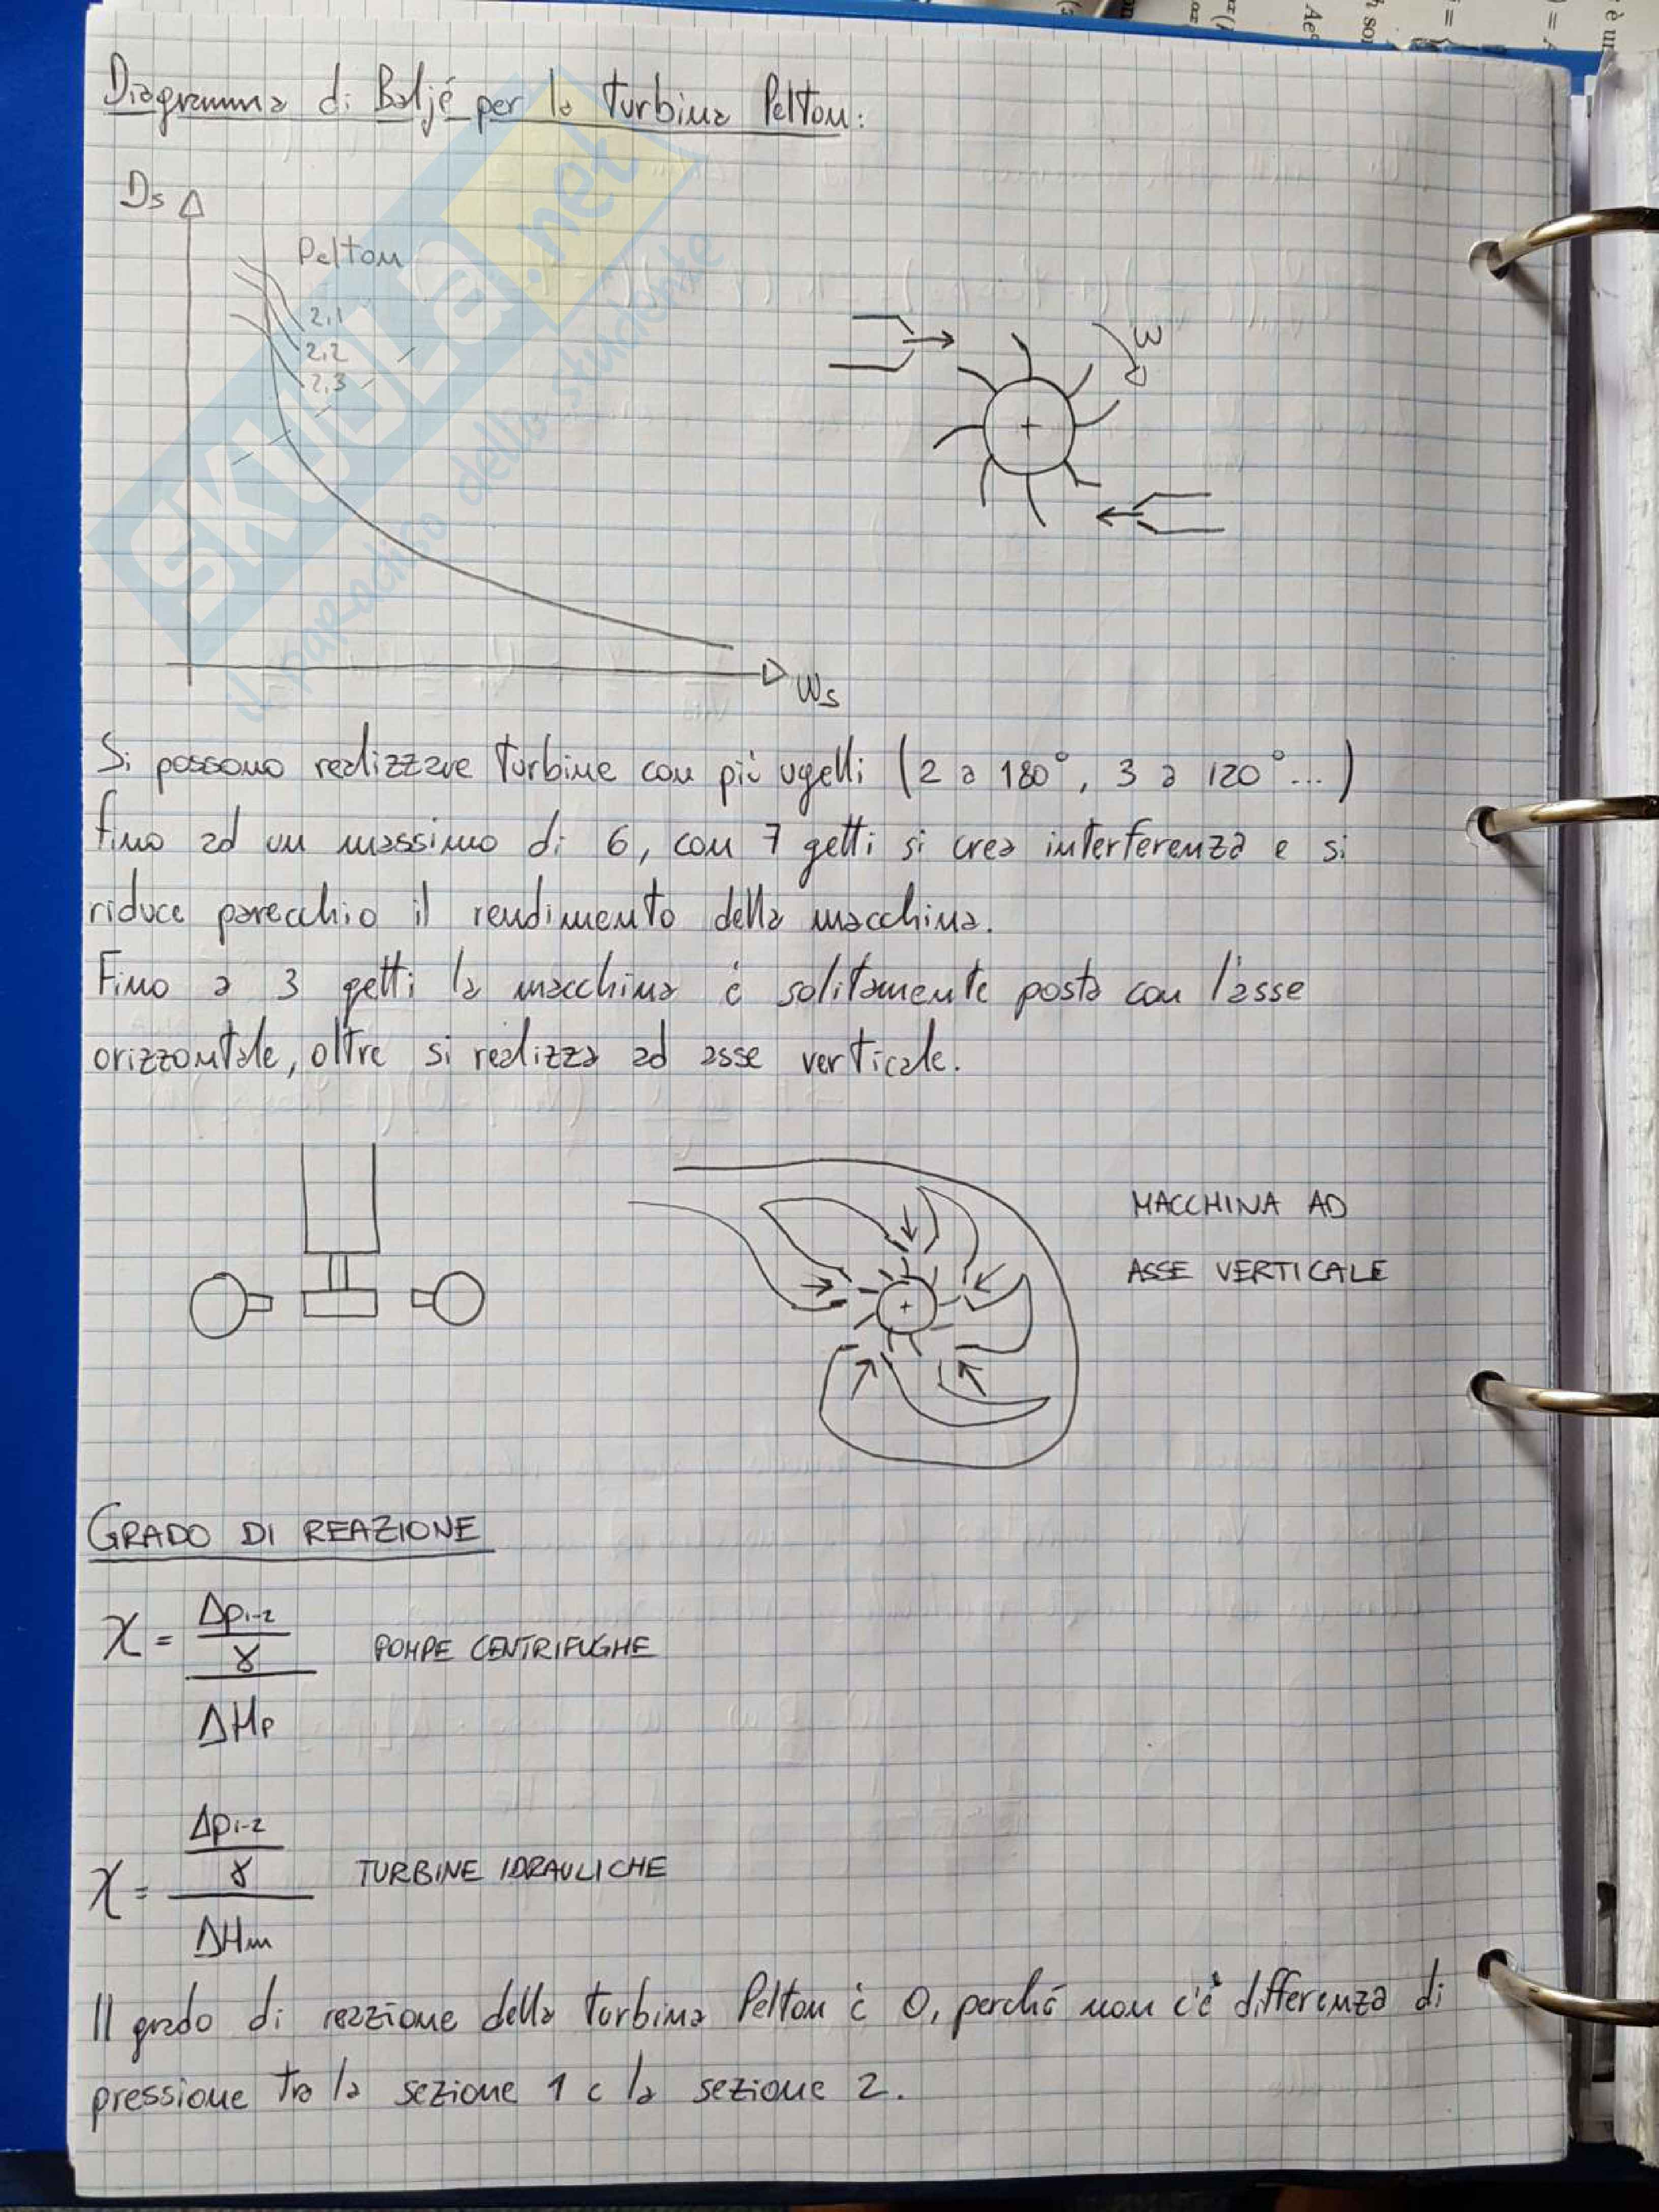 Diagramma di Baljé per la turbina Pelton:
Ds
Pelton
2,1
2,2
2,3
ω
ωs
SKUOLA.net
il paradiso dello studente
Si possono realizzare turbine con più ugelli (2 a 180°, 3 a 120°...)
fino ad un massimo di 6, con 7 getti si crea interferenza e si
riduce parecchio il rendimento della macchina.
Fino a 3 getti la macchina è solitamente posta con l'asse
orizzontale, oltre si realizza ad asse verticale.
MACCHINA AD
ASSE VERTICALE
GRADO DI REAZIONE
χ = Δp1-2/γ / ΔHp POMPE CENTRIFUGHE
χ = Δp1-2/γ / ΔHm TURBINE IDRAULICHE
Il grado di reazione della turbina Pelton è 0, perché non c'è differenza di
pressione tra la sezione 1 e la sezione 2.